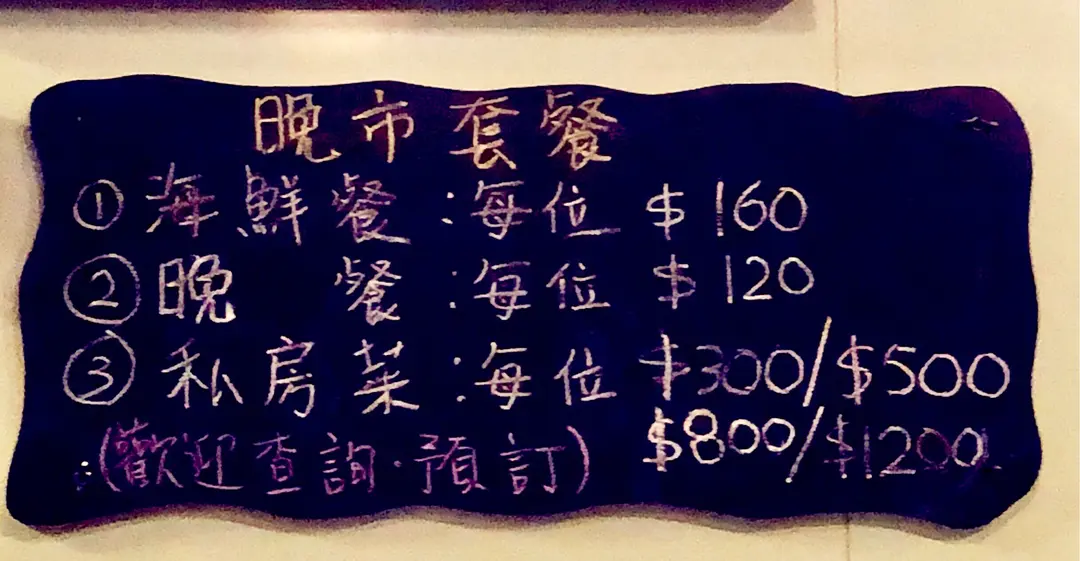 晚市套餐
① 海鮮餐:每位 $160
② 晚 餐:每位 $120
③ 私房菜:每位 $300/$500
$800/$1200
(歡迎查詢·預訂)